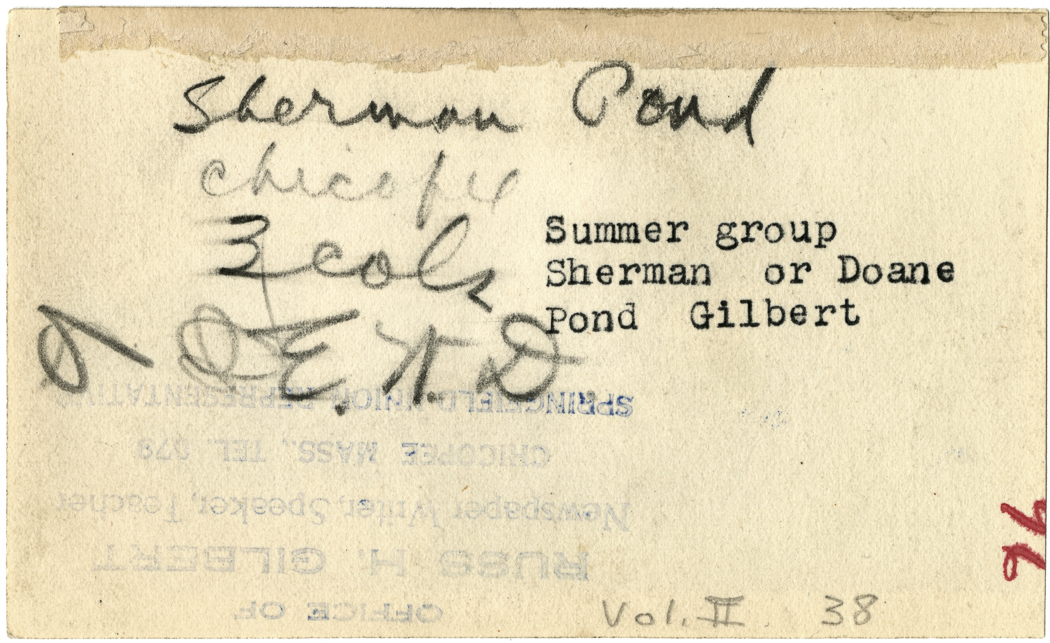 Sherman Pond
Chicopee
3 cols
Summer group
Sherman or Doane
Pond Gilbert
E. H. D
OFFICE OF
RUSS H. GILBERT
Newspaper Writer, Speaker, Teacher
CHICOPEE MASS., TEL. 979
SPRINGFIELD UNION REPRESENTATIVE
Vol. II 38